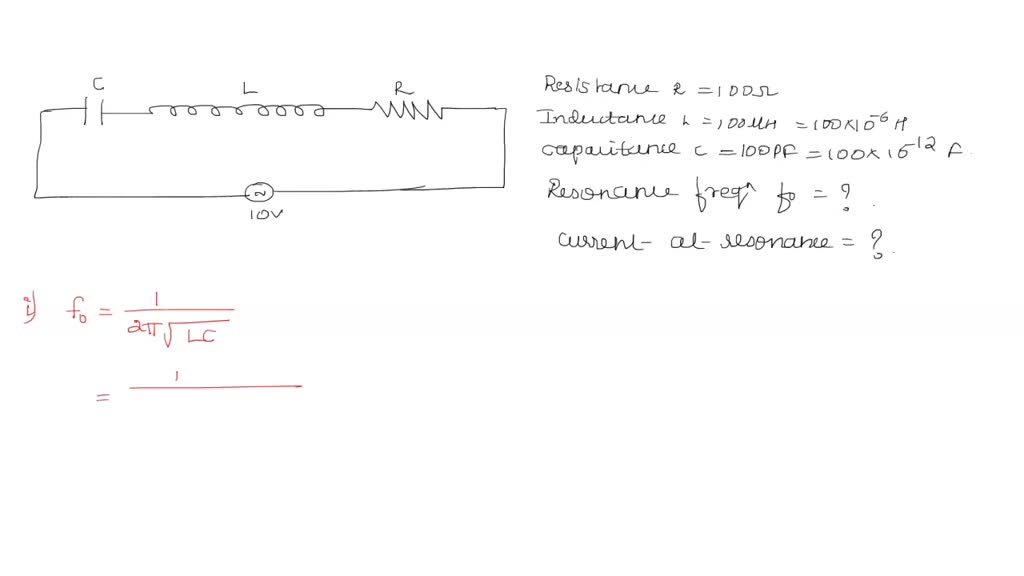 C L R
10V
Resistance R = 100Ω
Inductance L = 100μH = 100×10⁻⁶ H
Capacitance C = 100PF = 100×10⁻¹² F.
Resonance freqⁿ f₀ = ?
Current at resonance = ?
i) f₀ = 1 / 2π√LC
= 1